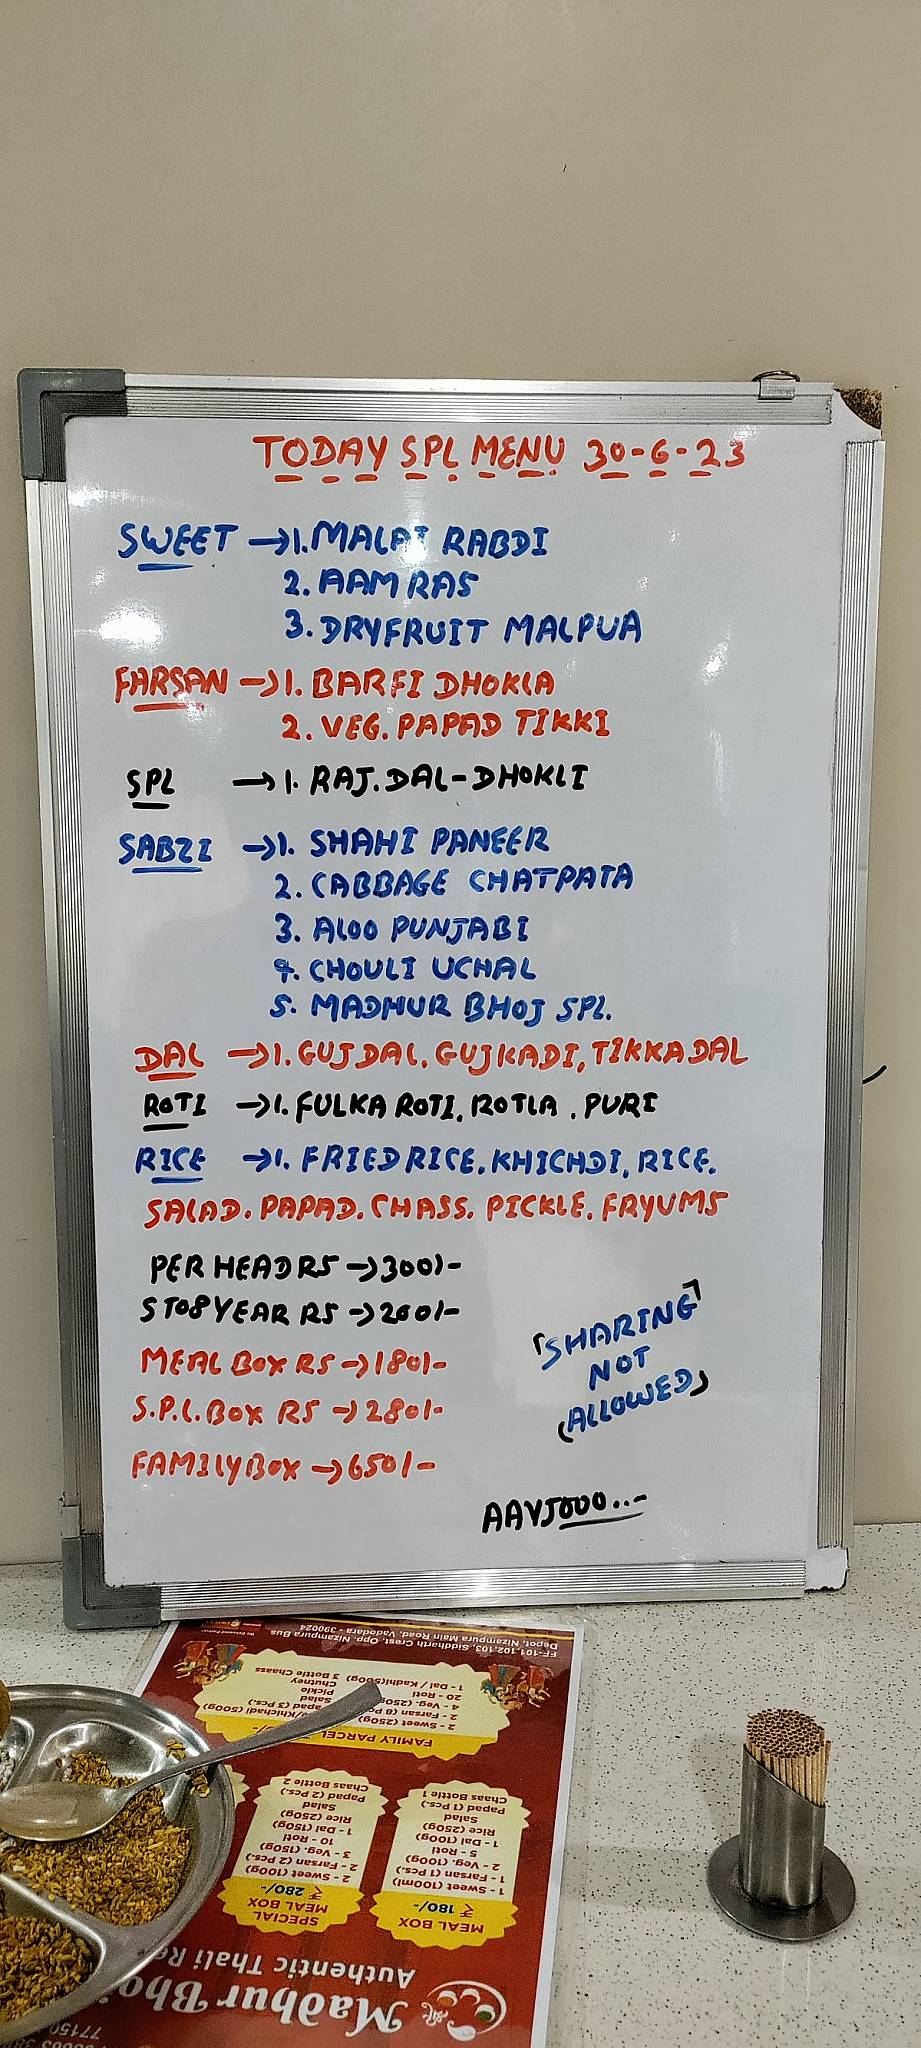 TODAY SPL MENU 30-6-23
SWEET → 1. MALAI RABDI
2. AAM RAS
3. DRYFRUIT MALPUA
FARSAN → 1. BARFI DHOKLA
2. VEG. PAPAD TIKKI
SPL → 1. RAJ. DAL-DHOKLI
SABZI → 1. SHAHI PANEER
2. CABBAGE CHATPATA
3. ALOO PUNJABI
4. CHOULI UCHAL
5. MADHUR BHOJ SPL.
DAL → 1. GUJ DAL, GUJ KADI, TIKKA DAL
ROTI → 1. FULKA ROTI, ROTLA, PURI
RICE → 1. FRIED RICE, KHICHDI, RICE.
SALAD. PAPAD. CHASS. PICKLE. FRYUMS
PER HEAD RS → 300/-
5 TO 8 YEAR RS → 200/-
MEAL BOX RS → 180/-
S.P.L. BOX RS → 280/-
FAMILY BOX → 650/-
"SHARING
NOT
(ALLOWED)
AAVJOOO..-
Madhur Bhoj
Authentic Thali Re
MEAL BOX
₹ 180/-
1 - Sweet (100ml)
1 - Farsan (1 Pcs.)
2 - Veg. (100g)
5 - Roti
1 - Dal (100g)
Rice (250g)
Salad
Papad (1 Pcs.)
Chaas Bottle 1
SPECIAL
MEAL BOX
₹ 280/-
2 - Sweet (100g)
2 - Farsan (2 Pcs.)
3 - Veg. (150g)
10 - Roti
1 - Dal (150g)
Rice (250g)
Salad
Papad (2 Pcs.)
Chaas Bottle 2
FAMILY PARCEL
2 - Sweet (250g)
2 - Farsan (8
4 - Veg. (250g)
20 - Roti
1 - Dal / Kadhi(500g)
Khichadi (500g)
Papad (3 Pcs.)
Salad
Pickle
Chutney
3 Bottle Chaass
FF-101,102,103, Siddharth Crest, Opp. Nizampura Bus
Depot, Nizampura Main Road, Vadodara - 390024